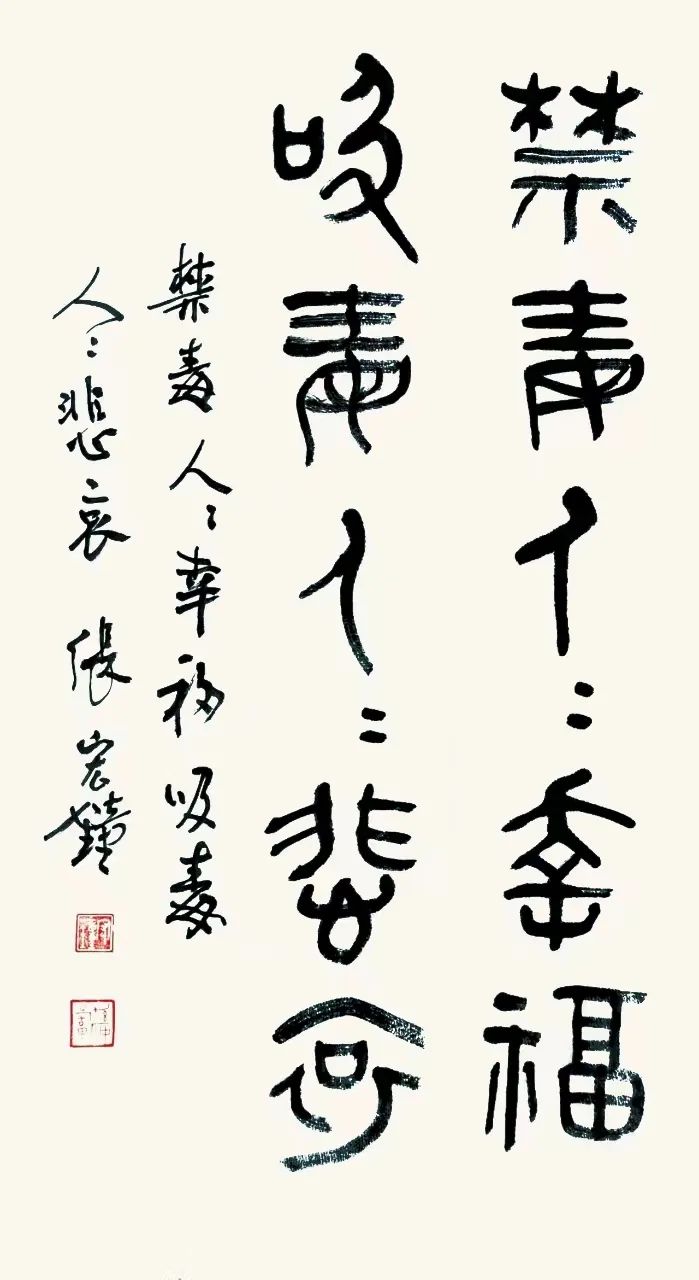 禁毒人〻幸福
吸毒人〻悲哀
禁毒人〻幸福吸毒
人〻悲哀 張宏鐘